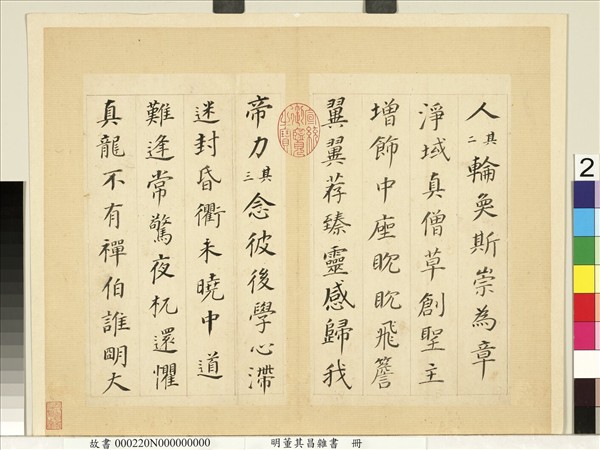 人其二輪奐斯崇為章
淨域真僧草創聖主
增飾中座眈眈飛簷
翼翼荐臻靈感歸我
宣統
御覽
之寶
帝力其三念彼後學心滯
迷封昏衢未曉中道
難逢常驚夜杌還懼
真龍不有禪伯誰明大
2
故書 000220N000000000 明董其昌雜書 冊